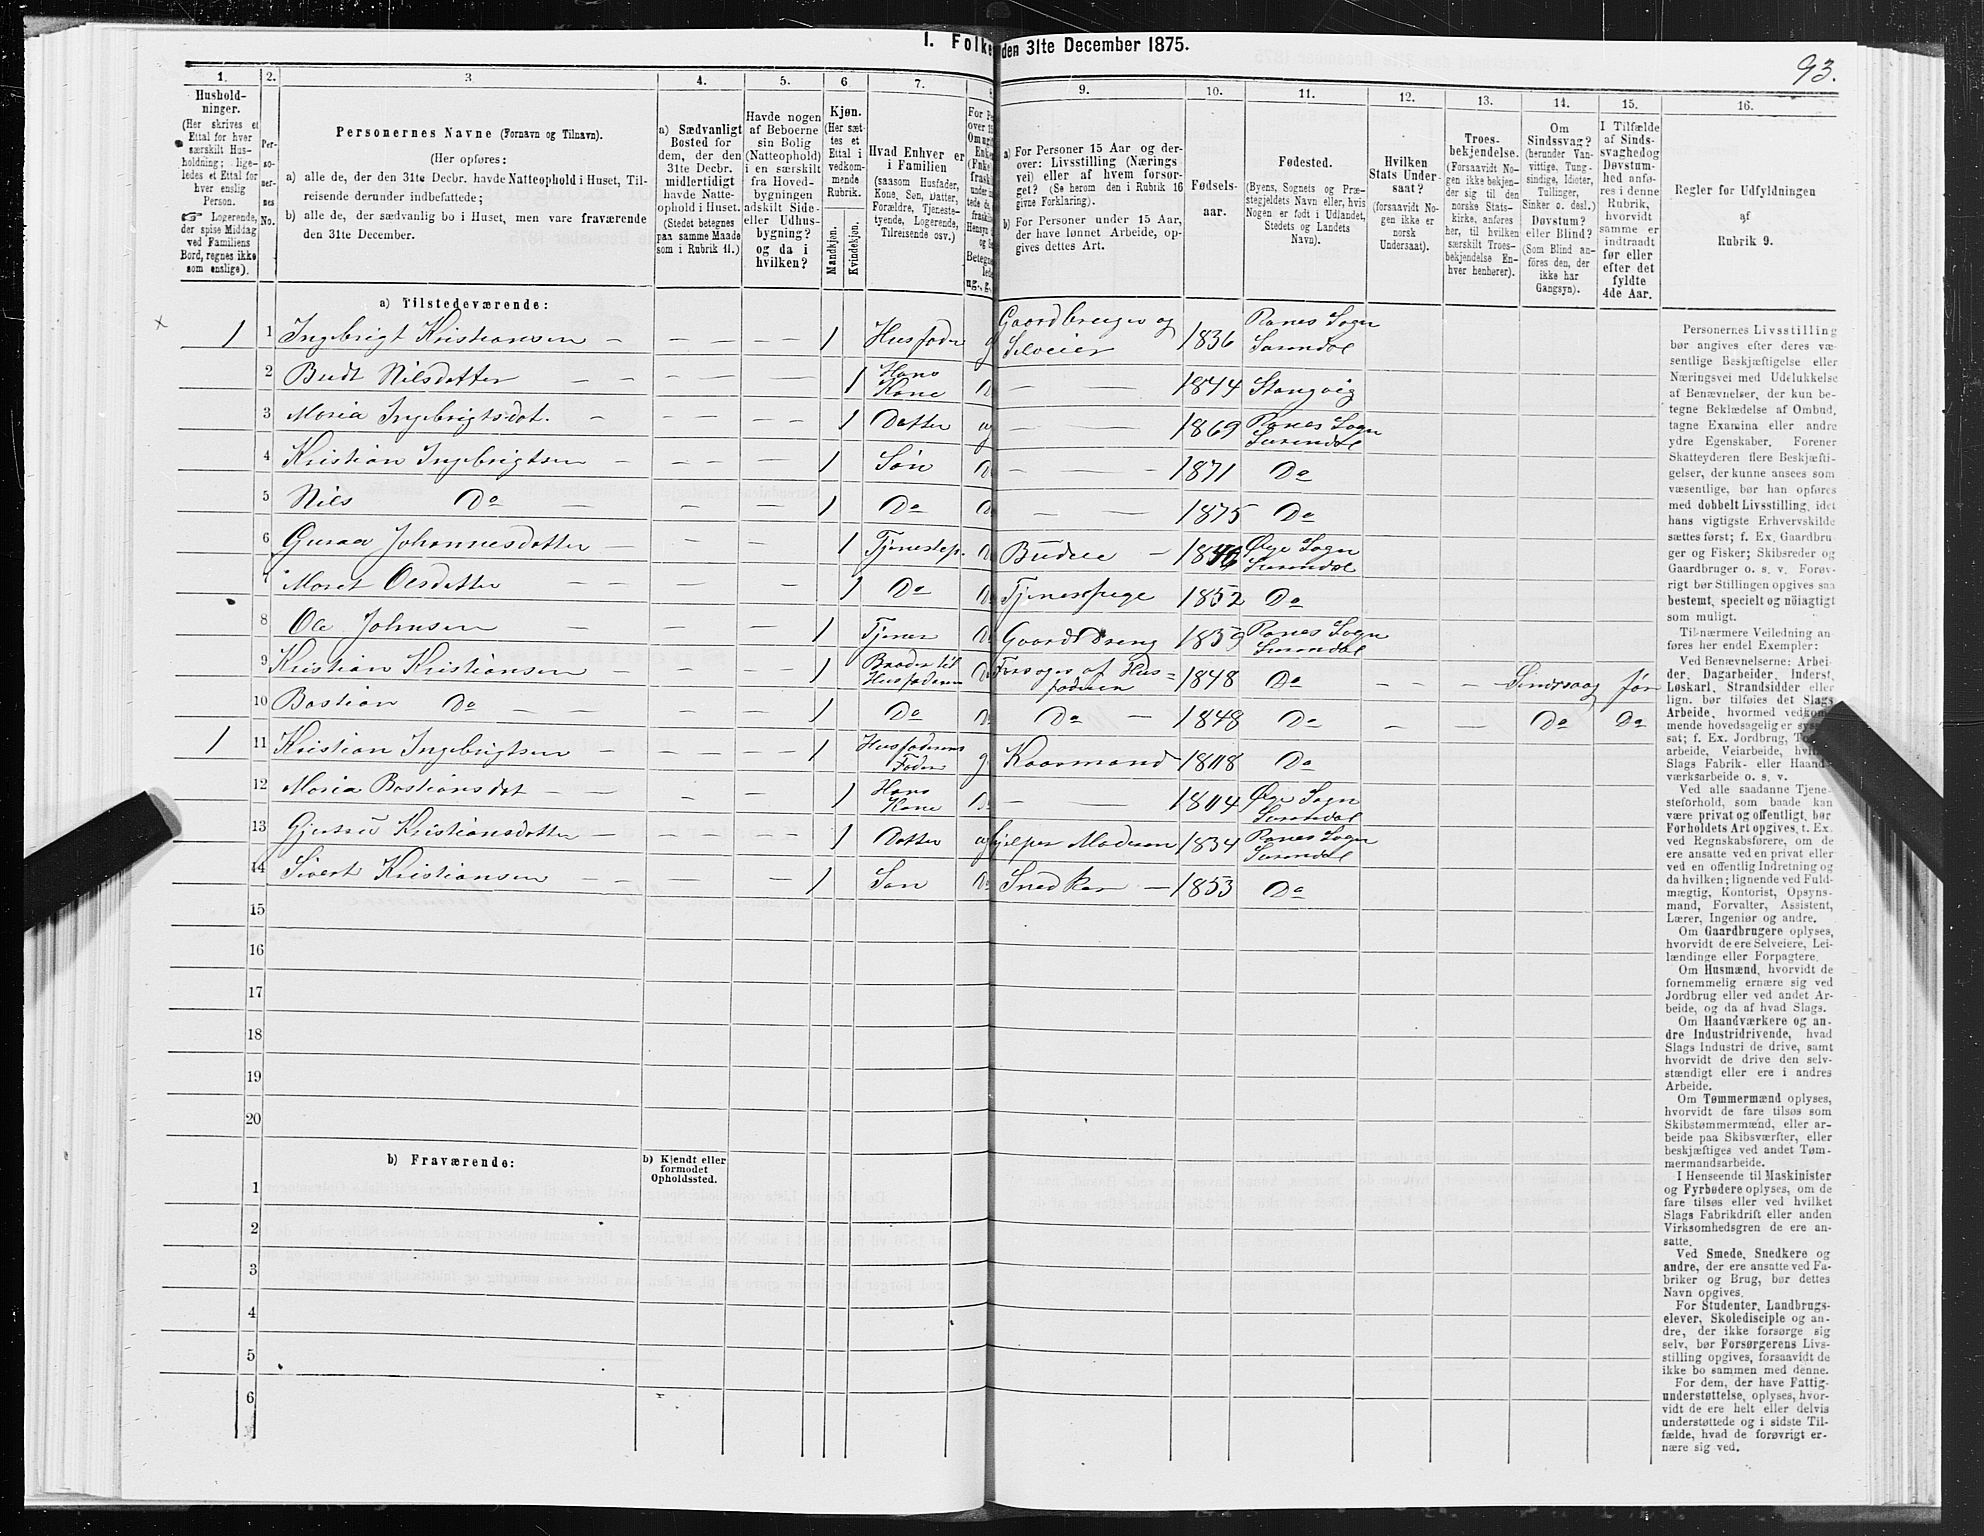 I. Folke den 31te December 1875.
93.
1. 2. 3 4. 5. 6 7. 8 9. 10. 11. 12. 13. 14. 15. 16.
Hushold-
ninger.
(Her skrives et
Ettal for hver
særskilt Hus-
holdning; lige-
ledes et Ettal for
hver enslig
Person.
☞ Logerende,
der spise Middag
ved Familiens
Bord, regnes ikke
som enslige).
Per-
so-
ner-
nes
No.
Personernes Navne (Fornavn og Tilnavn).
(Her opføres:
a) alle de, der den 31te Decbr. havde Natteophold i Huset, Til-
reisende derunder indbefattede;
b) alle de, der sædvanlig bo i Huset, men vare fraværende
den 31te December.
a) Sædvanligt
Bosted for
dem, der den
31te Decbr.
midlertidigt
havde Natte-
ophold i Huset.
(Stedet betegnes
paa samme Maade
som i Rubrik 11.)
Havde nogen
af Beboerne
sin Bolig
(Natteophold)
i en særskilt
fra Hoved-
bygningen
adskilt Side-
eller Udhus-
bygning?
og da i
hvilken?
Kjøn.
(Her sæt-
tes et
Ettal i
vedkom-
mende
Rubrik.
Mandkjøn.
Kvindekjøn.
Hvad Enhver er
i Familien
(saasom Husfader,
Kone, Søn, Datter,
Forældre, Tjeneste-
tyende, Logerende,
Tilreisende osv.)
a) For Personer 15 Aar og der-
over: Livsstilling (Nærings
vei) eller af hvem forsor-
get? (Se herom den i Rubrik 16
givne Forklaring).
b) For Personer under 15 Aar,
der have lønnet Arbeide, op-
gives dettes Art.
Fødsels-
aar.
Fødested.
(Byens, Sognets og Præ-
stegjeldets Navn eller, hvis
Nogen er født i Udlandet,
Stedets og Landets
Navn).
Hvilken
Stats Under-
saat?
(forsaavidt No-
gen ikke er
norsk
Undersaat).
Troes-
bekjendelse.
(Forsaavidt No-
gen ikke bekjen-
der sig til den
norske Stats-
kirke, anføres
her, til hvilken
særskilt Troes-
bekjendelse En-
hver henhører).
Om
Sindssvag?
(herunder Van-
vittige, Tung-
sindige, Idioter,
Tullinger,
Sinker o. desl.)
Døvstum?
eller Blind?
(Som Blind an-
føres den, der
ikke har
Gangsyn).
I Tilfælde
af Sinds-
svaghed og
Døvstum-
hed anfø-
res i denne
Rubrik,
hvorvidt
samme er
indtraadt
før eller
efter det
fyldte
4de Aar.
Regler for Udfyldningen
af
Rubrik 9.
a) Tilstedeværende:
1 1 Ingebrigt Kristiansen 1 Husfader g Gaardbruger og Selveier 1836 Ranes Sogn Surendal
2 Budt Nilsdatter 1 Hans Kone Do 1844 Stangvig
3 Maria Ingebrigtsdat. 1 Datter ug 1869 Ranes Sogn Surendal
4 Kristian Ingebrigtsen 1 Søn Do 1871 Do
5 Nils Do 1 Do Do 1875 Do
6 Guraa Johannesdatter 1 Tjenestep. Do Budeie 1846 Øye Sogn Surendal
7 Maret Olsdatter 1 Do Do Tjenestpige 1852 Do
8 Ole Johnsen 1 Tjener Do Gaardsdreng 1859 Ranes Sogn Surendal
9 Kristian Kristiansen 1 Broder til Husfaderen Do Forsørges af Hus-faderen 1848 Do Sindssvag før
10 Bastian Do 1 Do Do Do 1848 Do Do Do
1 11 Kristian Ingebrigtsen 1 Husfaderens Fader g Kaarmand 1808 Do
12 Maria Bastiansdat 1 Hans Kone Do 1804 Øye Sogn Surendal
13 Gjertru Kristiansdatter 1 Datter ug hjelper Moderen 1834 Ranes Sogn Surendal
14 Sivert Kristiansen 1 Søn Do Snedker 1853 Do
15
16
17
18
19
20
b) Fraværende:
b) Kjendt eller
formodet
Opholdssted.
1
2
3
4
5
6
Personernes Livsstilling
bør angives efter deres væ-
sentlige Beskjæftigelse eller
Næringsvei med Udelukkelse
af Benævnelser, der kun be-
tegne Beklædelse af Ombud,
tagne Examina eller andre
ydre Egenskaber. Forener
Skatteyderen flere Beskjæfti-
gelser, der kunne ansees som
væsentlige, bør han opføres
med dobbelt Livsstilling, idet
hans vigtigste Erhvervskilde
sættes først; f. Ex. Gaardbru-
ger og Fisker; Skibsreder og
Gaardbruger o. s. v. Forøv-
rigt bør Stillingen opgives saa
bestemt, specielt og nöiagtigt
som muligt.
Til nærmere Veiledning an-
føres her endel Exempler:
Ved Benævnelserne: Arbei-
der, Dagarbeider, Inderst,
Løskarl, Strandsidder eller
lign. bør tilføies det Slags
Arbeide, hvormed vedkom-
mende hovedsagelig er syssel-
sat; f. Ex. Jordbrug, Tomte-
arbeide, Veiarbeide, hvilket
Slags Fabrik- eller Haand-
værksarbeide o. s. v.
Ved alle saadanne Tjene-
steforhold, som baade kan
være privat og offentligt, bør
Forholdets Art opgives, t. Ex.
ved Regnskabsførere, om de
ere ansatte ved en privat eller
ved en offentlig Indretning og
da hvilken; lignende ved Fuld-
mægtig, Kontorist, Opsyns-
mand, Forvalter, Assistent,
Lærer, Ingeniør og andre.
Om Gaardbrugere oplyses,
hvorvidt de ere Selveiere, Lei-
lændinge eller Forpagtere.
Om Husmænd, hvorvidt de
fornemmelig ernære sig ved
Jordbrug eller ved andet Ar-
beide, og da af hvad Slags.
Om Haandværkere og an-
dre Industridrivende, hvad
Slags Industri de drive, samt
hvorvidt de drive den selv-
stændigt eller ere i andres
Arbeide.
Om Tømmermænd oplyses,
hvorvidt de fare tilsøs som
Skibstømmermænd, eller ar-
beide paa Skibsværfter, eller
beskjæftiges ved andet Tøm-
mermandsarbeide.
I Henseende til Maskinister
og Fyrbødere oplyses, om de
fare tilsøs eller ved hvilket
Slags Fabrikdrift eller anden
Virksomhedsgren de ere an-
satte.
Ved Smede, Snedkere og
andre, der ere ansatte ved Fa-
briker og Brug, bør dettes
Navn opgives.
For Studenter, Landbrugs-
elever, Skoledisciple og an-
dre, der ikke forsørge sig
selv, bør Forsørgerens Livs-
stilling opgives, forsaavidt de
ikke bo sammen med denne.
For dem, der have Fattig-
understøttelse, oplyses, hvor-
vidt de ere helt eller delvis
understøttede og i sidste Til-
fælde, hvad de forøvrigt er-
nære sig ved.